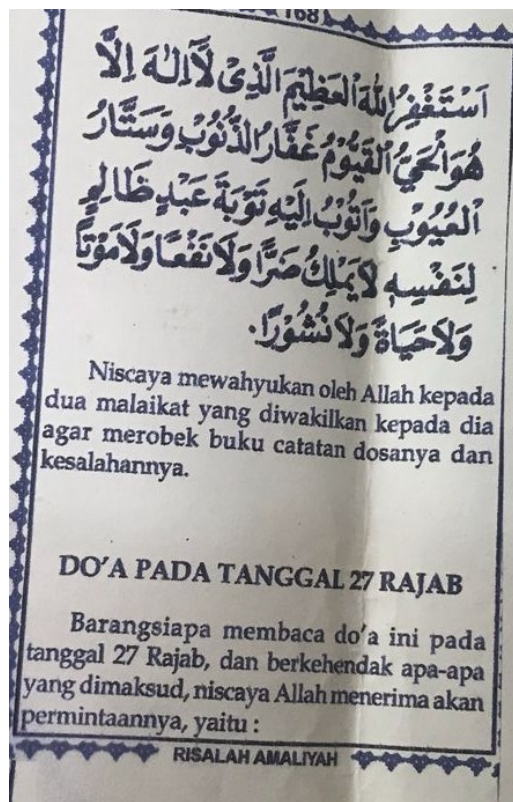 168
اَسْتَغْفِرُ اللهَ الْعَظِيْمَ الَّذِيْ لَا اِلٰهَ اِلَّا
هُوَ الْحَيُّ الْقَيُّوْمُ غَفَّارُ الذُّنُوْبِ وَسَتَّارُ
الْعُيُوْبِ وَاَتُوْبُ اِلَيْهِ تَوْبَةَ عَبْدٍ ظَالِمٍ
لِنَفْسِهِ لَا يَمْلِكُ ضَرًّا وَلَا نَفْعًا وَلَا مَوْتًا
وَلَا حَيَاةً وَلَا نُشُوْرًا.
Niscaya mewahyukan oleh Allah kepada
dua malaikat yang diwakilkan kepada dia
agar merobek buku catatan dosanya dan
kesalahannya.
DO'A PADA TANGGAL 27 RAJAB
Barangsiapa membaca do'a ini pada
tanggal 27 Rajab, dan berkehendak apa-apa
yang dimaksud, niscaya Allah menerima akan
permintaannya, yaitu :
RISALAH AMALIYAH